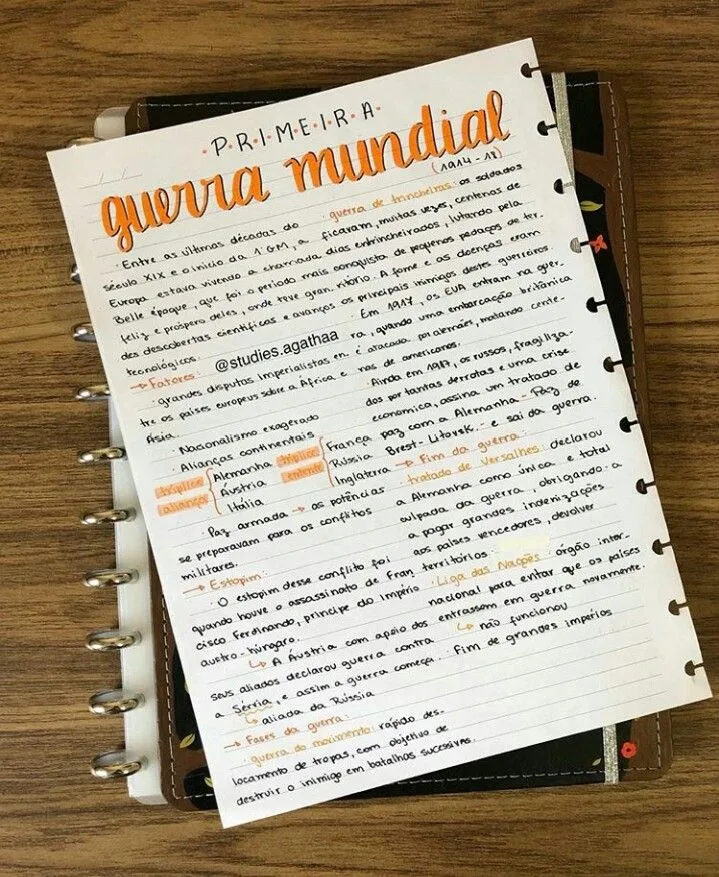 P.R.I.M.E.I.R.A.
guerra mundial
(1914-18)
· Entre as últimas décadas do
século XIX e o início da 1ªGM, a
Europa estava vivendo a chamada
Belle époque, que foi o período mais
feliz e próspero deles, onde teve gran.
des descobertas científicas e avanços
tecnológicos.
@studies.agathaa
→ Fatores:
· grandes disputas imperialistas en.
tre os países europeus sobre a África e
Ásia.
· Nacionalismo exagerado
· Alianças continentais
tríplice aliança { Alemanha Áustria Itália
tríplice entente { França Rússia Inglaterra
· Paz armada → as potências
se preparavam para os conflitos
militares.
→ Estopim:
· O estopim desse conflito foi
quando houve o assassinato de Fran
cisco Ferdinando, príncipe do Império
austro-húngaro.
↳ A Áustria com apoio dos
seus aliados declarou guerra contra
a Sérvia, e assim a guerra começa.
↳ aliada da Rússia
→ Fases da guerra:
· guerra do movimento: rápido des-
locamento de tropas, com objetivo de
destruir o inimigo em batalhas sucessivas.
· guerra de trincheiras: os soldados
ficaram, muitas vezes, centenas de
dias entrincheirados, lutando pela
conquista de pequenos pedaços de ter.
ritório. A fome e as doenças eram
os principais inimigos destes guerreiros.
· Em 1917, os EUA entram na guer.
ra, quando uma embarcação britânica
é atacada por alemães, matando cente-
nas de americanos.
· Ainda em 1917, os russos, fragiliza-
dos por tantas derrotas e uma crise
econômica, assina um tratado de
paz com a Alemanha - Paz de
Brest-Litovsk. - e sai da guerra.
→ Fim da guerra:
· tratado de Versalhes: declarou
a Alemanha como única e total
culpada da guerra, obrigando-a
a pagar grandes indenizações
aos países vencedores, devolver
territórios.
· Liga das Nações: órgão inter-
nacional para evitar que os países
entrassem em guerra novamente.
↳ não funcionou
· Fim de grandes impérios